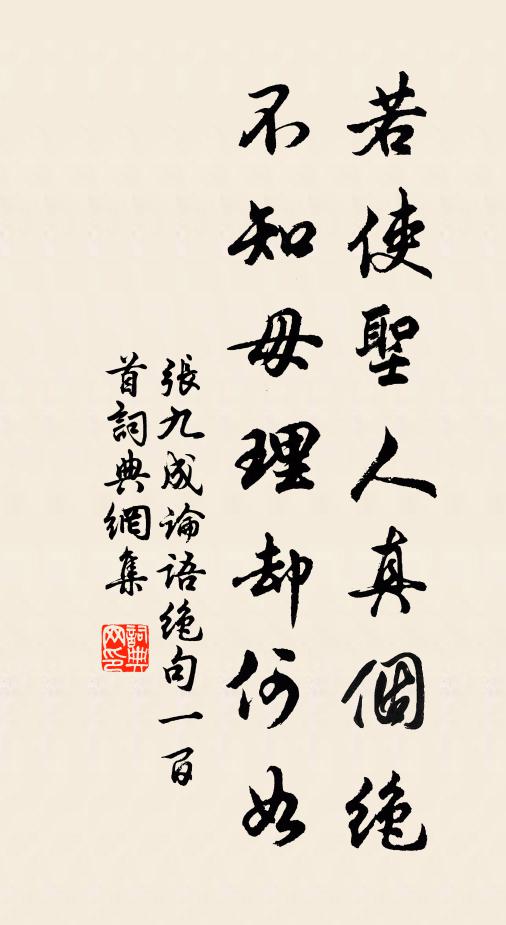 若使聖人真個絶
不知毋理却何如
張九成論語絶句一百
首詞典網集
詞典
网印